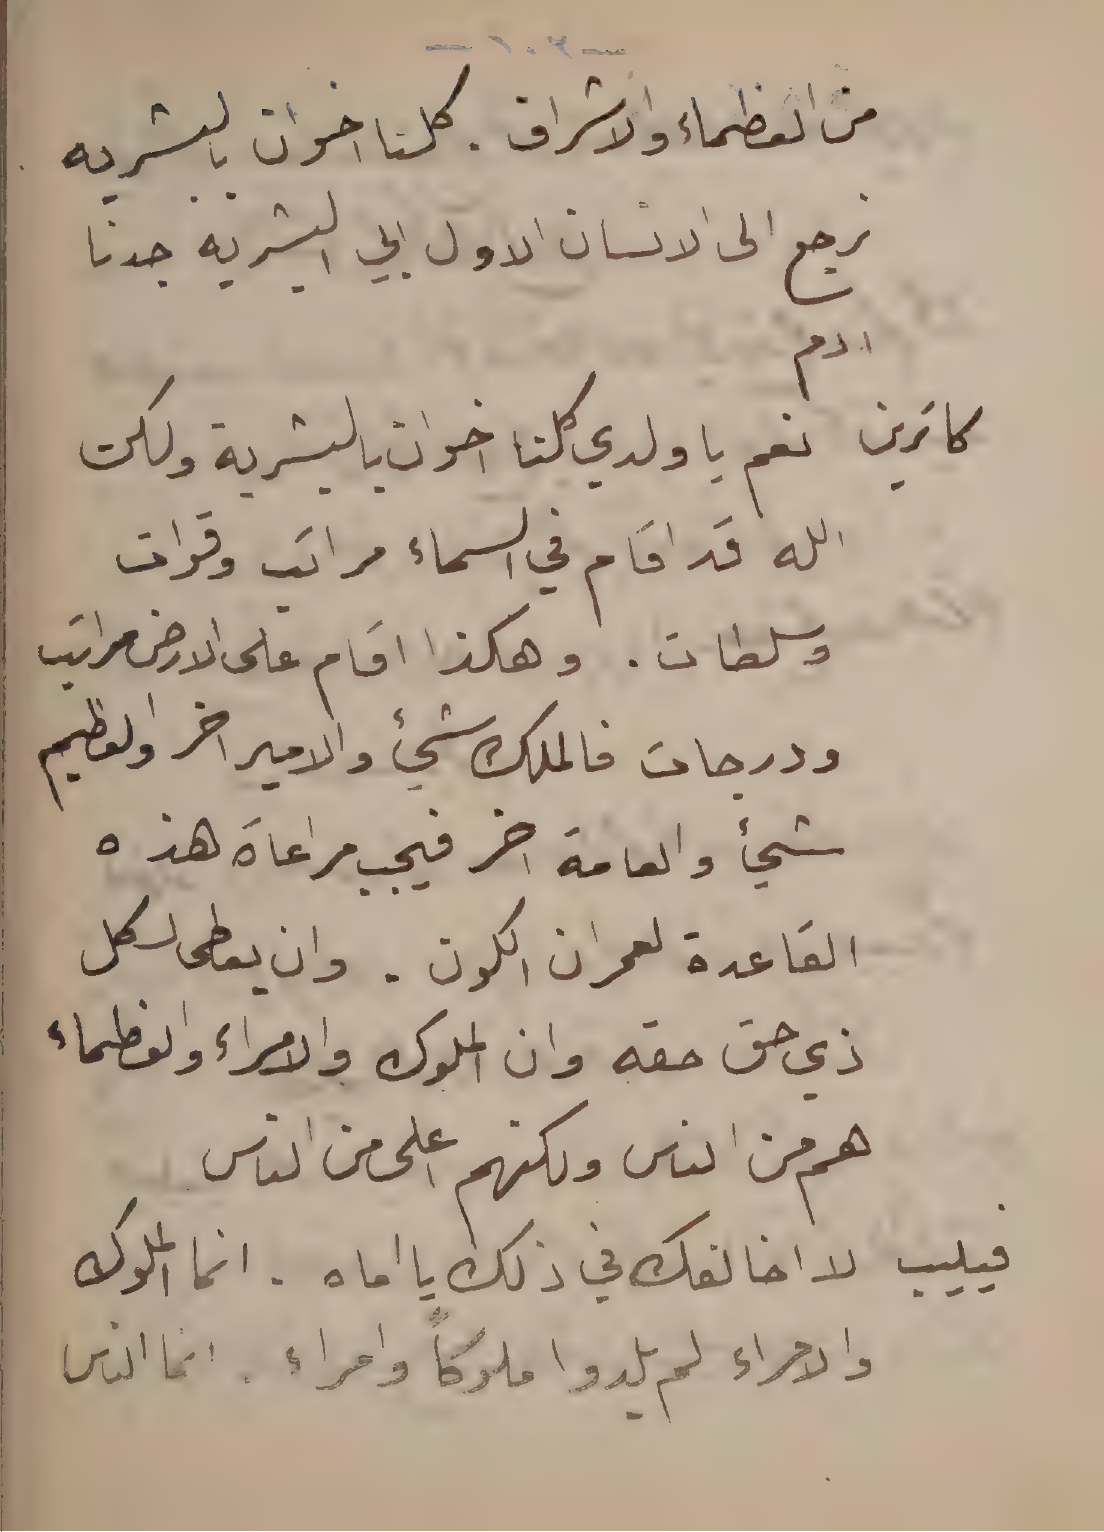 من العظماء والاشراف . كلنا اخوان بالبشريه
نرجع الى الانسان الاول ابي البشرية جدنا
ادم
كاترين نعم يا ولدي كلنا اخوان بالبشرية ولكن
الله قد اقام في السماء مراتب وقوات
وسلطات . وهكذا اقام على الارض مراتب
ودرجات فالملك شئ والامير اخر والعظيم
شئ والعامة اخر فيجب مراعاة هذه
القاعدة لعمران الكون . وان يعطى لكل
ذي حق حقه وان الملوك والامراء والعظماء
هم من الناس ولكنهم اعلى من الناس
فيليب لا اخالفك في ذلك يا اماه . انما الملوك
والامراء لم يلدوا ملوكاً وامراء . انما الناس